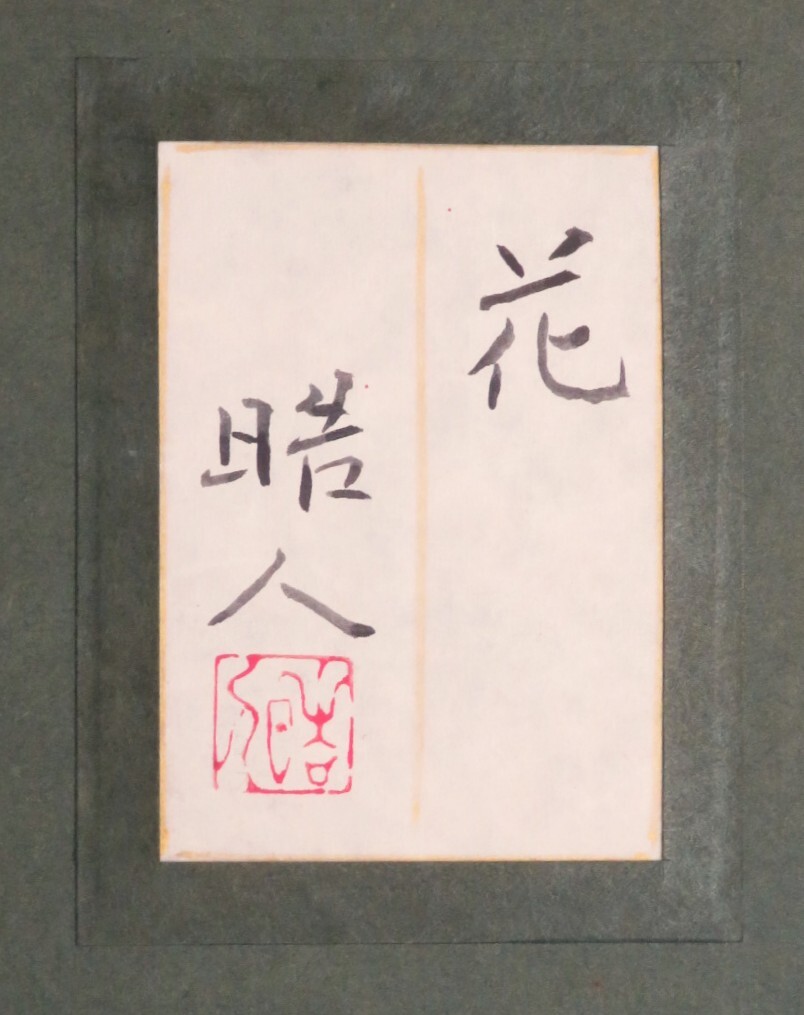 花
晧人